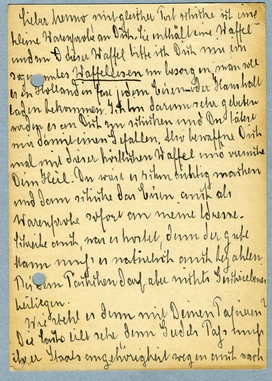 Lieber Benno, mit gleicher Post schicke ich eine
kleine Warenprobe an Dich. Sie enthält eine Waffel
und zu dieser Waffel bitte ich Dich mir ein
sogenanntes Waffeleisen zu besorgen, man soll
es in Holland in fast jedem Eisen- oder Haushalt
laden bekommen. Ich bin darum sehr gebeten
worden es an Dich zu schicken und Du tätest
mir damit einen Gefallen. Also bewaffne Dich
mal mit dieser köstlichen Waffel und versuche
Dein Heil. Du weist es schon richtig machen
und dann schicke das Eisen auch als
Warenprobe sofort an meine Adresse.
Schreibe auch, was es kostet, denn der gute
Mann muss es natürlich auch bezahlen.
Bei dem Päckchen darf aber nichts Geschriebenes
beiliegen.
Wie steht es denn mit Deinen Papieren?
Die Sache eilt sehr, denn Pass muss
ihrer Staatsangehörigkeit wegen auch nach